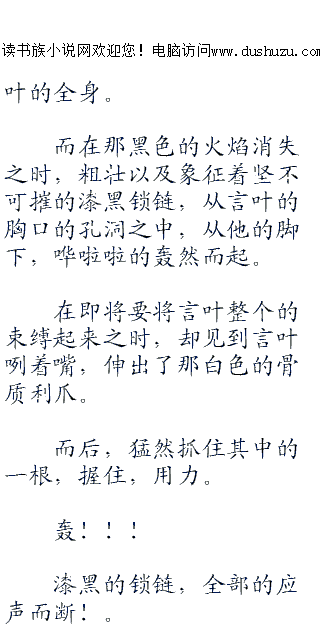 读书族小说网欢迎您！电脑访问www.dushuzu.com
叶的全身。
而在那黑色的火焰消失
之时，粗壮以及象征着坚不
可摧的漆黑锁链，从言叶的
胸口的孔洞之中，从他的脚
下，哗啦啦的轰然而起。
在即将要将言叶整个的
束缚起来之时，却见到言叶
咧着嘴，伸出了那白色的骨
质利爪。
而后，猛然抓住其中的
一根，握住，用力。
轰！！！
漆黑的锁链，全部的应
声而断！。